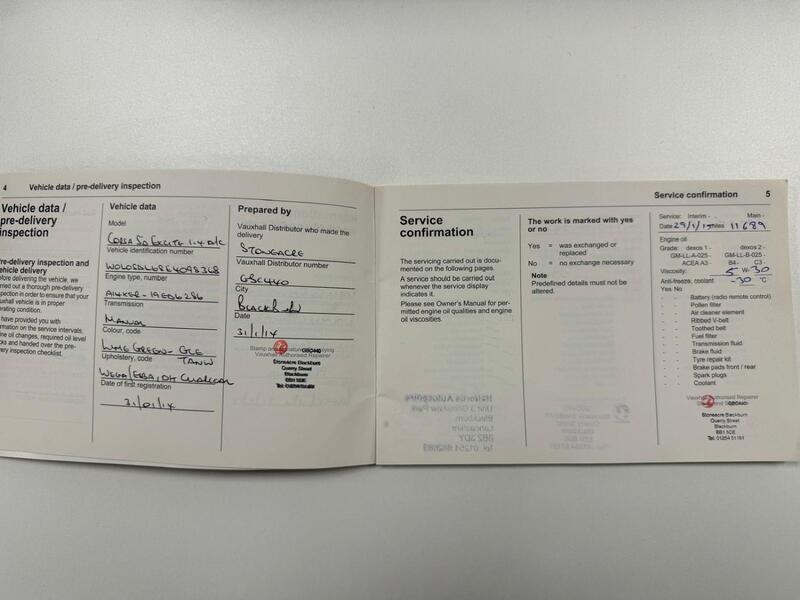 4 Vehicle data / pre-delivery inspection
Vehicle data /
pre-delivery
inspection
pre-delivery inspection and
vehicle delivery
before delivering the vehicle, we
carried out a thorough pre-delivery
inspection in order to ensure that your
vehicle is in proper
operating condition.
have provided you with
information on the service intervals,
oil changes, required oil level
and handed over the pre-
delivery inspection checklist.
Vehicle data
Model
CORSA 5D EXCITE 1.4 a/c
Vehicle identification number
Engine type, number
Transmission
MANUAL
Colour, code
LIME GREEN - GLE
Upholstery, code
Date of first registration
31/01/14
Prepared by
Vauxhall Distributor who made the
delivery
STONEACRE
Vauxhall Distributor number
City
Blackburn
Date
31/1/14
Stoneacre Blackburn
Quarry Street
Blackburn
BB1 5DE
Service confirmation 5
Service
confirmation
The servicing carried out is docu-
mented on the following pages.
A service should be carried out
whenever the service display
indicates it.
Please see Owner's Manual for per-
mitted engine oil qualities and engine
oil viscosities.
The work is marked with yes
or no
Yes = was exchanged or
replaced
No = no exchange necessary
Note
Predefined details must not be
altered.
Service: Interim - Main -
Date 29/1/15 Miles 11689
Engine oil
Grade: dexos 1 - dexos 2 -
GM-LL-A-025 - GM-LL-B-025 -
ACEA A3 - B4 - C3 -
Viscosity: 5 W-30
Anti-freeze, coolant -30 °C
Yes No
- - Battery (radio remote control)
- - Pollen filter
- - Air cleaner element
- - Ribbed V-belt
- - Toothed belt
- - Fuel filter
- - Transmission fluid
- - Brake fluid
- - Tyre repair kit
- - Brake pads front / rear
- - Spark plugs
- - Coolant
Vauxhall Authorised Repairer
Stoneacre Blackburn
Quarry Street
Blackburn
BB1 5DE
Tel: 01254 51191